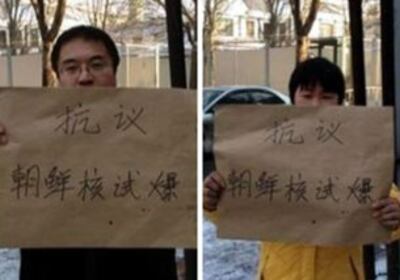 抗议
朝鲜核试爆
抗议
朝鲜核试爆